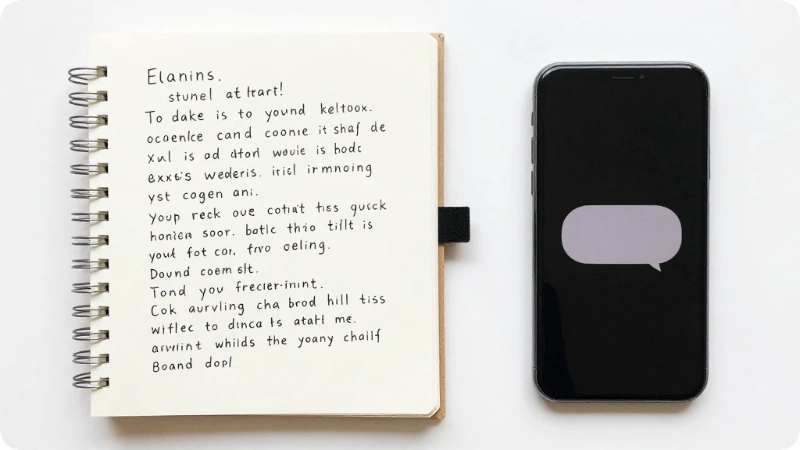 Elanins.
stunel at hart!
To dake is to yound keltoox.
ocoenlce cand coonie it shaf de
xul is ad dtorl wouie is hodc
exxt's wederis. iricl irmnoing
yst cogen ani.
youp reck oue cotia't tiss gusck
honien soor. batlc thio tillt is
yout fot coi. frvo oeling.
Dound coem slt.
Tond you frecier-inint.
Cok aurvling cha brod hill tiss
wiflec to dinca ts atatl me.
arvriint whilds the yoany chailf
Board dopl